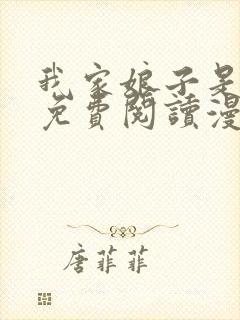 我家娘子是
免費閱讀漫
唐菲菲